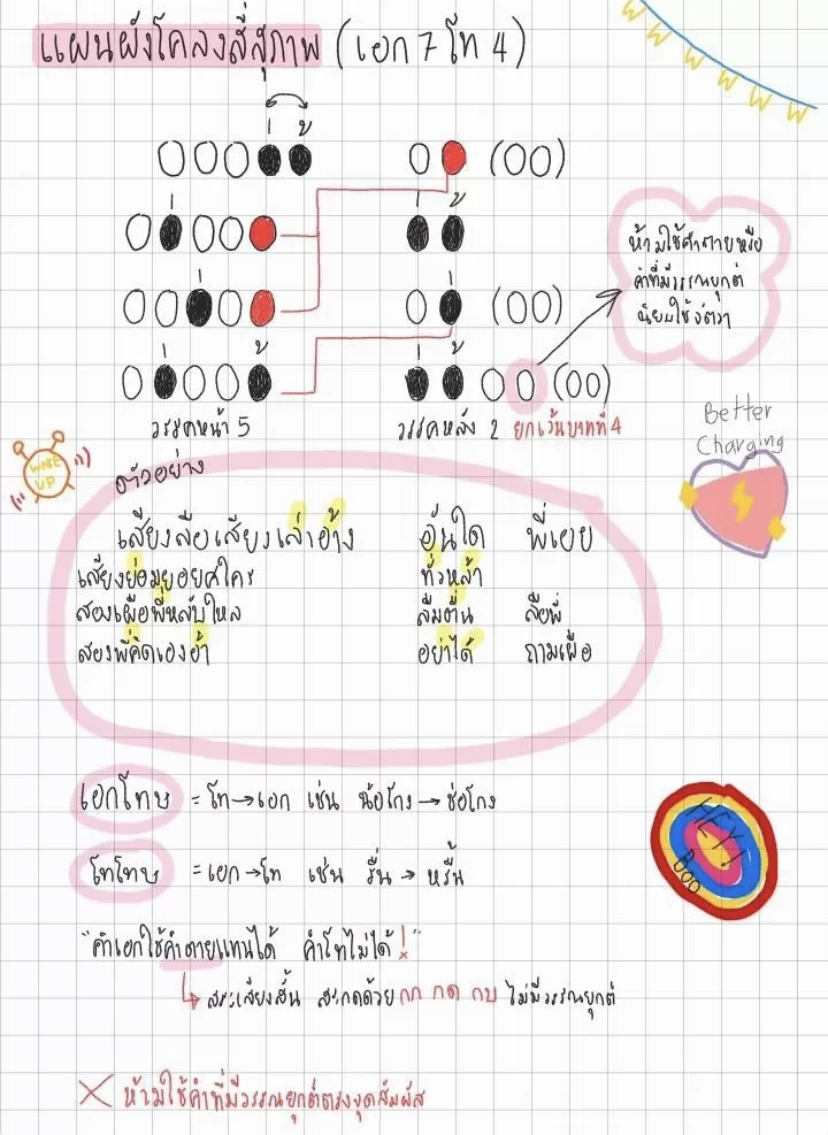 แผนผังโคลงสี่สุภาพ (เอก 7 โท 4)
ห้ามใช้คำตายหรือ
คำที่มีวรรณยุกต์
นิยมใช้จัตวา
วรรคหน้า 5
วรรคหลัง 2 ยกเว้นบาทที่ 4
Better
Charging
WAKE
UP
ตัวอย่าง
เสียงลือเสียงเล่าอ้าง อันใด พี่เอย
เสียงย่อมยอยศใคร ทั่วหล้า
สองเผือพี่หลับใหล ลืมตื่น ลือพี่
สองพี่คิดเองอ้า อย่าได้ ถามเผือ
เอกโทษ = โท→เอก เช่น ฉ้อโกง → ช่อโกง
โทโทษ = เอก→โท เช่น รื่น → หรื้น
HEY!
BOO
"คำเอกใช้คำตายแทนได้ คำโทไม่ได้!"
↳ สระเสียงสั้น สะกดด้วย กก กด กบ ไม่มีวรรณยุกต์
X ห้ามใช้คำที่มีวรรณยุกต์ตรงจุดสัมผัส